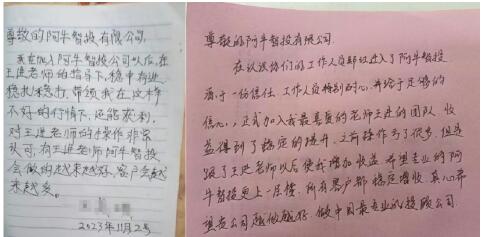 尊敬的阿牛智投有限公司
我在加入阿牛智投公司以后,在
王进老师的指导下,稳中有进
稳扎稳打,带领我在这样
不好的行情下,还能获利,
对王进老师的操作非常
认可,有王进老师阿牛智投
会做的越来越好,客户会越
来越多。
2023年11月2号
尊敬的阿牛智投有限公司
在认识你们的工作人员却以进入了阿牛智投
看,于一份信任,工作人员特别耐心,并给予足够的
信心,正式加入我最喜爱的老师王进的团队 收
益得到了稳定的提升,之前操作亏了很多,但是
跟了王进老师以后使我增加收益,希望专业的阿
牛智投更上一层楼,所有客户都稳定增收,真心希
望贵公司越做越好,做中国最专业的投顾公司